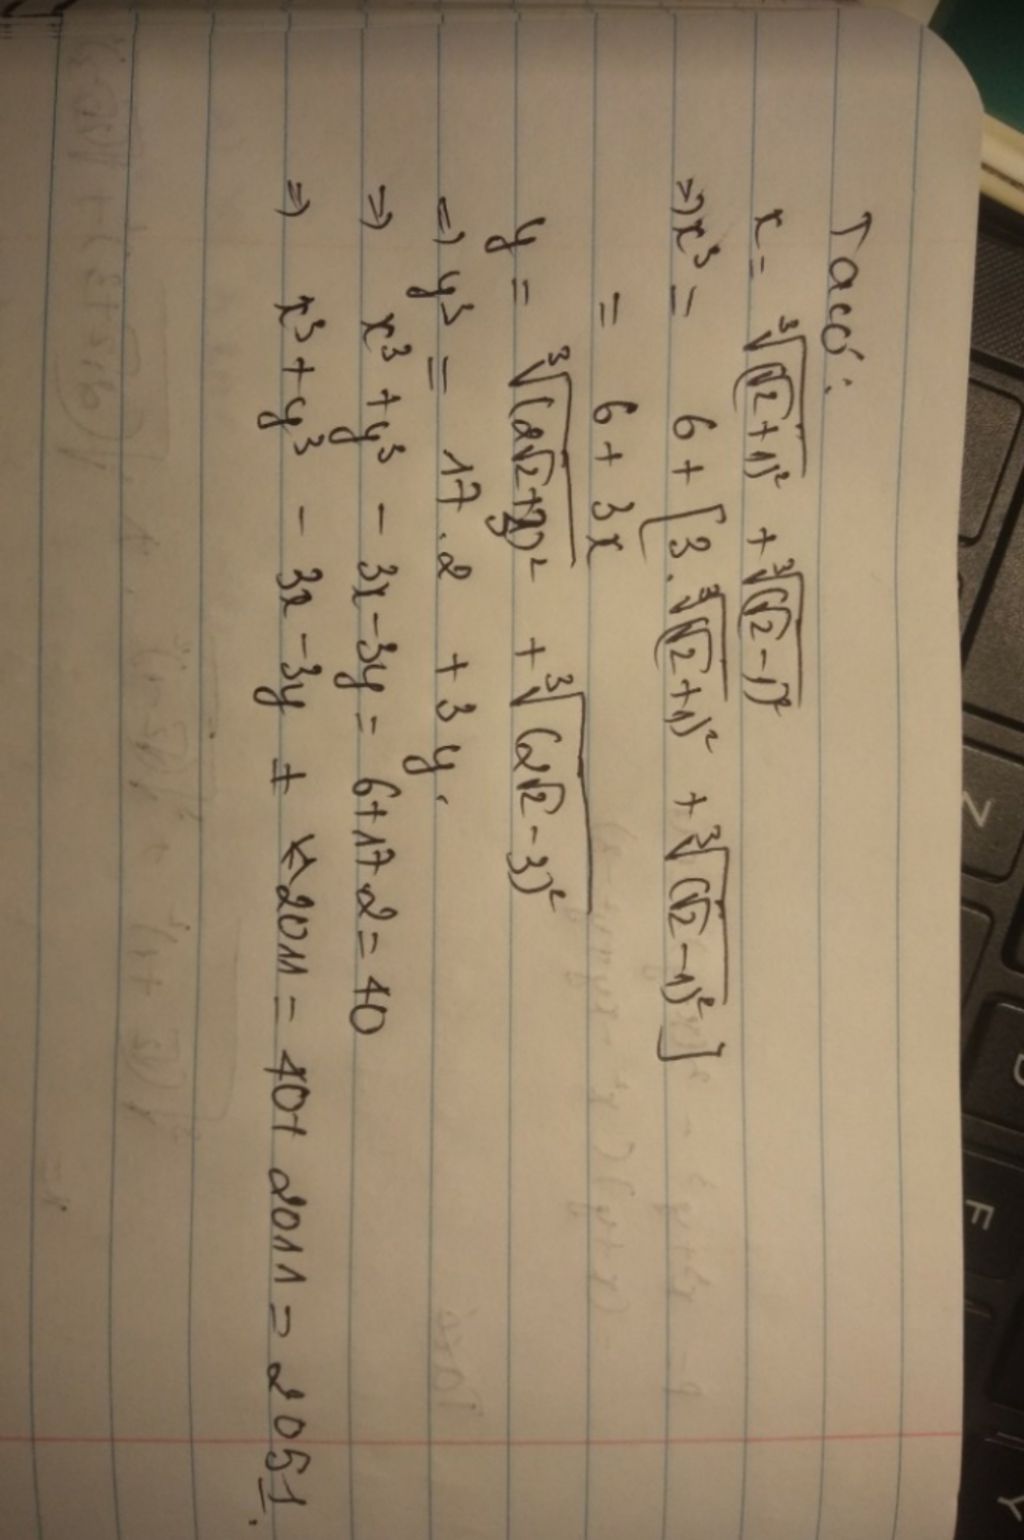 Ta có:
x = ∛(√2+1)² + ∛(√2-1)²
=> x³ = 6 + [3.∛(√2+1)² + ∛(√2-1)²]
= 6 + 3x
y = ∛(2√2+3)² + ∛(2√2-3)²
=> y³ = 17.2 + 3y.
=> x³ + y³ - 3x - 3y = 6+17.2 = 40
=> x³ + y³ - 3x - 3y + 2011 = 40 + 2011 = 2051.
Z
D
F
Y